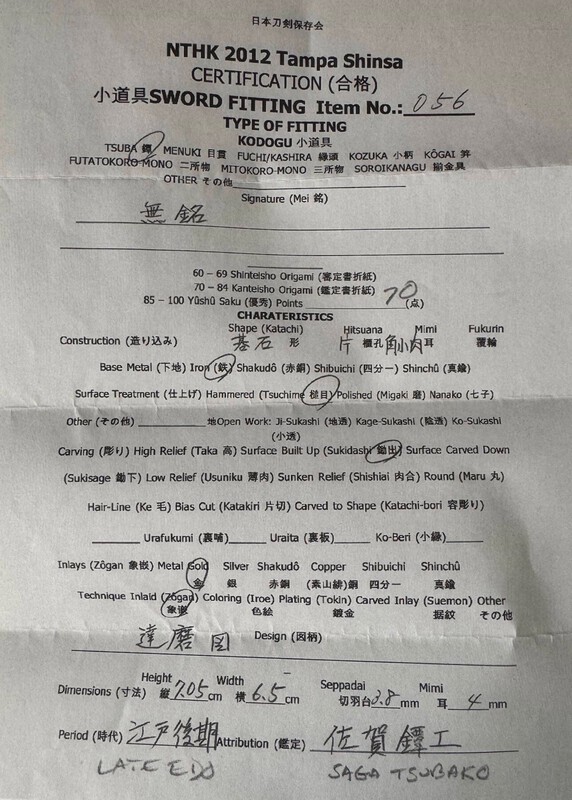 日本刀剣保存会
NTHK 2012 Tampa Shinsa
CERTIFICATION (合格)
小道具SWORD FITTING Item No.: 056
TYPE OF FITTING
KODOGU 小道具
TSUBA 鐔 MENUKI 目貫 FUCHI/KASHIRA 縁頭 KOZUKA 小柄 KŌGAI 笄
FUTATOKORO-MONO 二所物 MITOKORO-MONO 三所物 SOROIKANAGU 揃金具
OTHER その他
Signature (Mei 銘)
無銘
60 – 69 Shinteisho Origami (審定書折紙)
70 – 84 Kanteisho Origami (鑑定書折紙)
85 – 100 Yûshû Saku (優秀) Points 70 (点)
CHARATERISTICS
Shape (Katachi) Hitsuana Mimi Fukurin
Construction (造り込み) 碁石 形 片 櫃孔 角小肉 耳 覆輪
Base Metal (下地) Iron (鉄) Shakudô (赤銅) Shibuichi (四分一) Shinchû (真鍮)
Surface Treatment (仕上げ) Hammered (Tsuchime 槌目) Polished (Migaki 磨) Nanako (七子)
Other (その他) 地Open Work: Ji-Sukashi (地透) Kage-Sukashi (陰透) Ko-Sukashi
(小透)
Carving (彫り) High Relief (Taka 高) Surface Built Up (Sukidashi 鋤出) Surface Carved Down
(Sukisage 鋤下) Low Relief (Usuniku 薄肉) Sunken Relief (Shishiai 肉合) Round (Maru 丸)
Hair-Line (Ke 毛) Bias Cut (Katakiri 片切) Carved to Shape (Katachi-bori 容彫り)
Urafukumi (裏哺) Uraita (裏板) Ko-Beri (小縁)
Inlays (Zôgan 象嵌) Metal Gold Silver Shakudô Copper Shibuichi Shinchû
金 銀 赤銅 (素山緋)銅 四分一 真鍮
Technique Inlaid (Zôgan) Coloring (Iroe) Plating (Tokin) Carved Inlay (Suemon) Other
象嵌 色絵 鍍金 据紋 その他
達磨図 Design (図柄)
Height Width Seppadai Mimi
Dimensions (寸法) 縦 7.05 cm 横 6.5 cm 切羽台 3.8 mm 耳 4 mm
Period (時代) 江戸後期 Attribution (鑑定) 佐賀鐔工
LATE EDO SAGA TSUBAKO